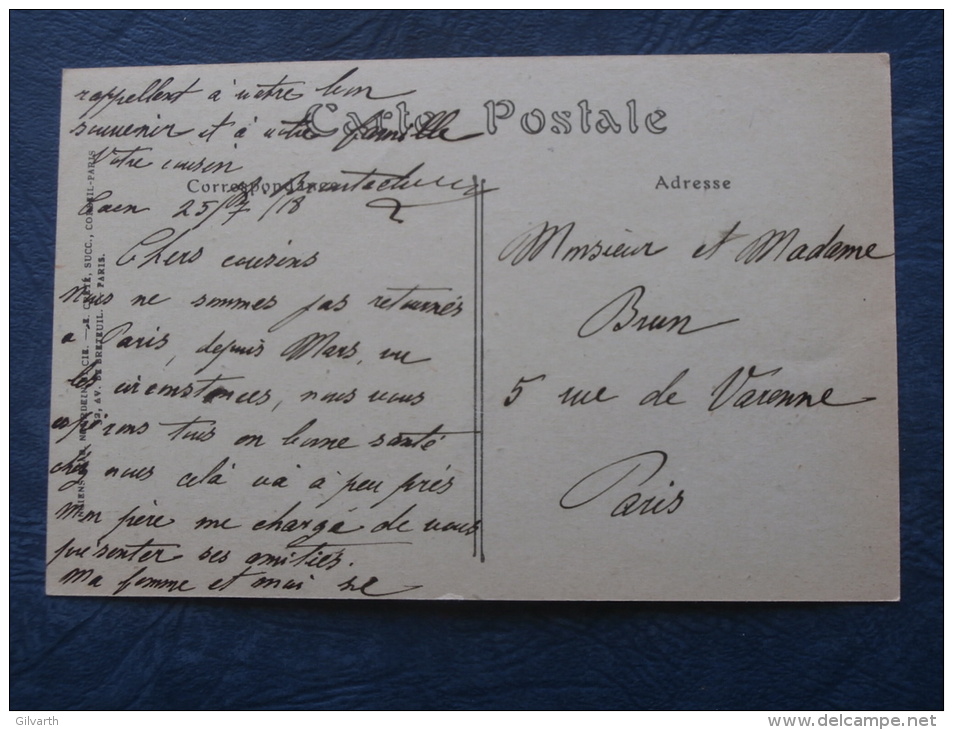 Carte Postale
Correspondance
Adresse
Caen 25/7/18
Chers cousins
Nous ne sommes pas retournés
à Paris, depuis Mars, vu
les circonstances, nous vous
espérons tous en bonne santé
chez nous celà và à peu près
Mon père me charge de vous
présenter ses amitiés.
Ma femme et moi se
rappellent à votre bon
souvenir et à votre famille
Votre cousin
Monsieur et Madame
Brun
5 rue de Varenne
Paris
CIE. — E. CRÉTÉ, SUCC., CORBEIL-PARIS
AV. DE BRETEUIL, PARIS.
Gilvarth
http://www.delcampe.net